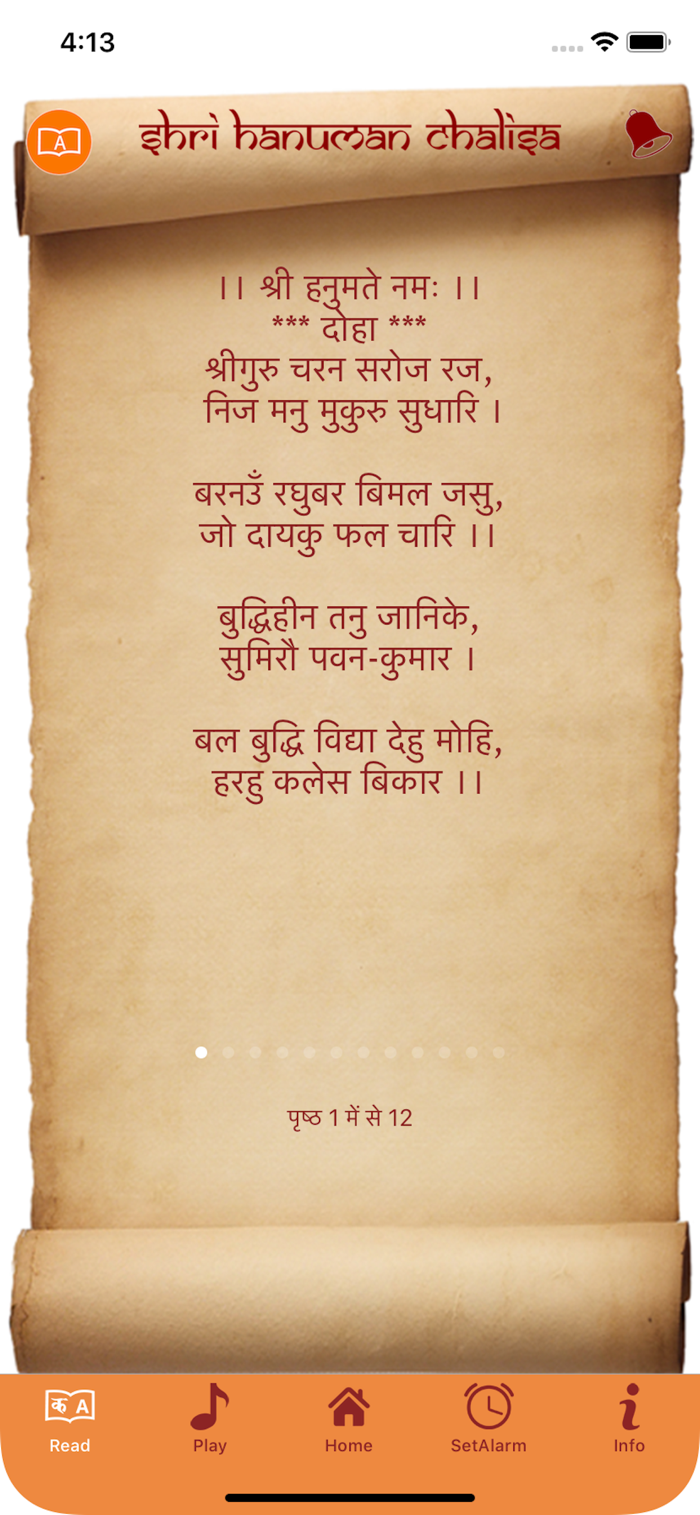 4:13
shri hanuman chalisa
।। श्री हनुमते नमः ।।
*** दोहा ***
श्रीगुरु चरन सरोज रज,
निज मनु मुकुरु सुधारि ।
बरनउँ रघुबर बिमल जसु,
जो दायकु फल चारि ।।
बुद्धिहीन तनु जानिके,
सुमिरौ पवन-कुमार ।
बल बुद्धि विद्या देहु मोहि,
हरहु कलेस बिकार ।।
पृष्ठ 1 में से 12
Read Play Home SetAlarm Info